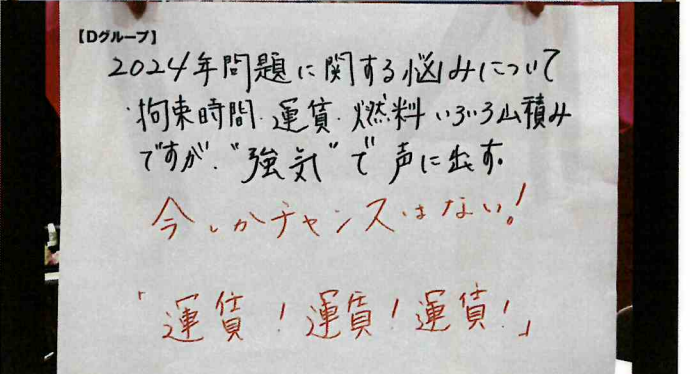 【Dグループ】
2024年問題に関する悩みについて
・拘束時間・運賃・燃料いろいろ山積み
ですが、"強気"で声に出す。
今しかチャンスはない!
「運賃!運賃!運賃!」